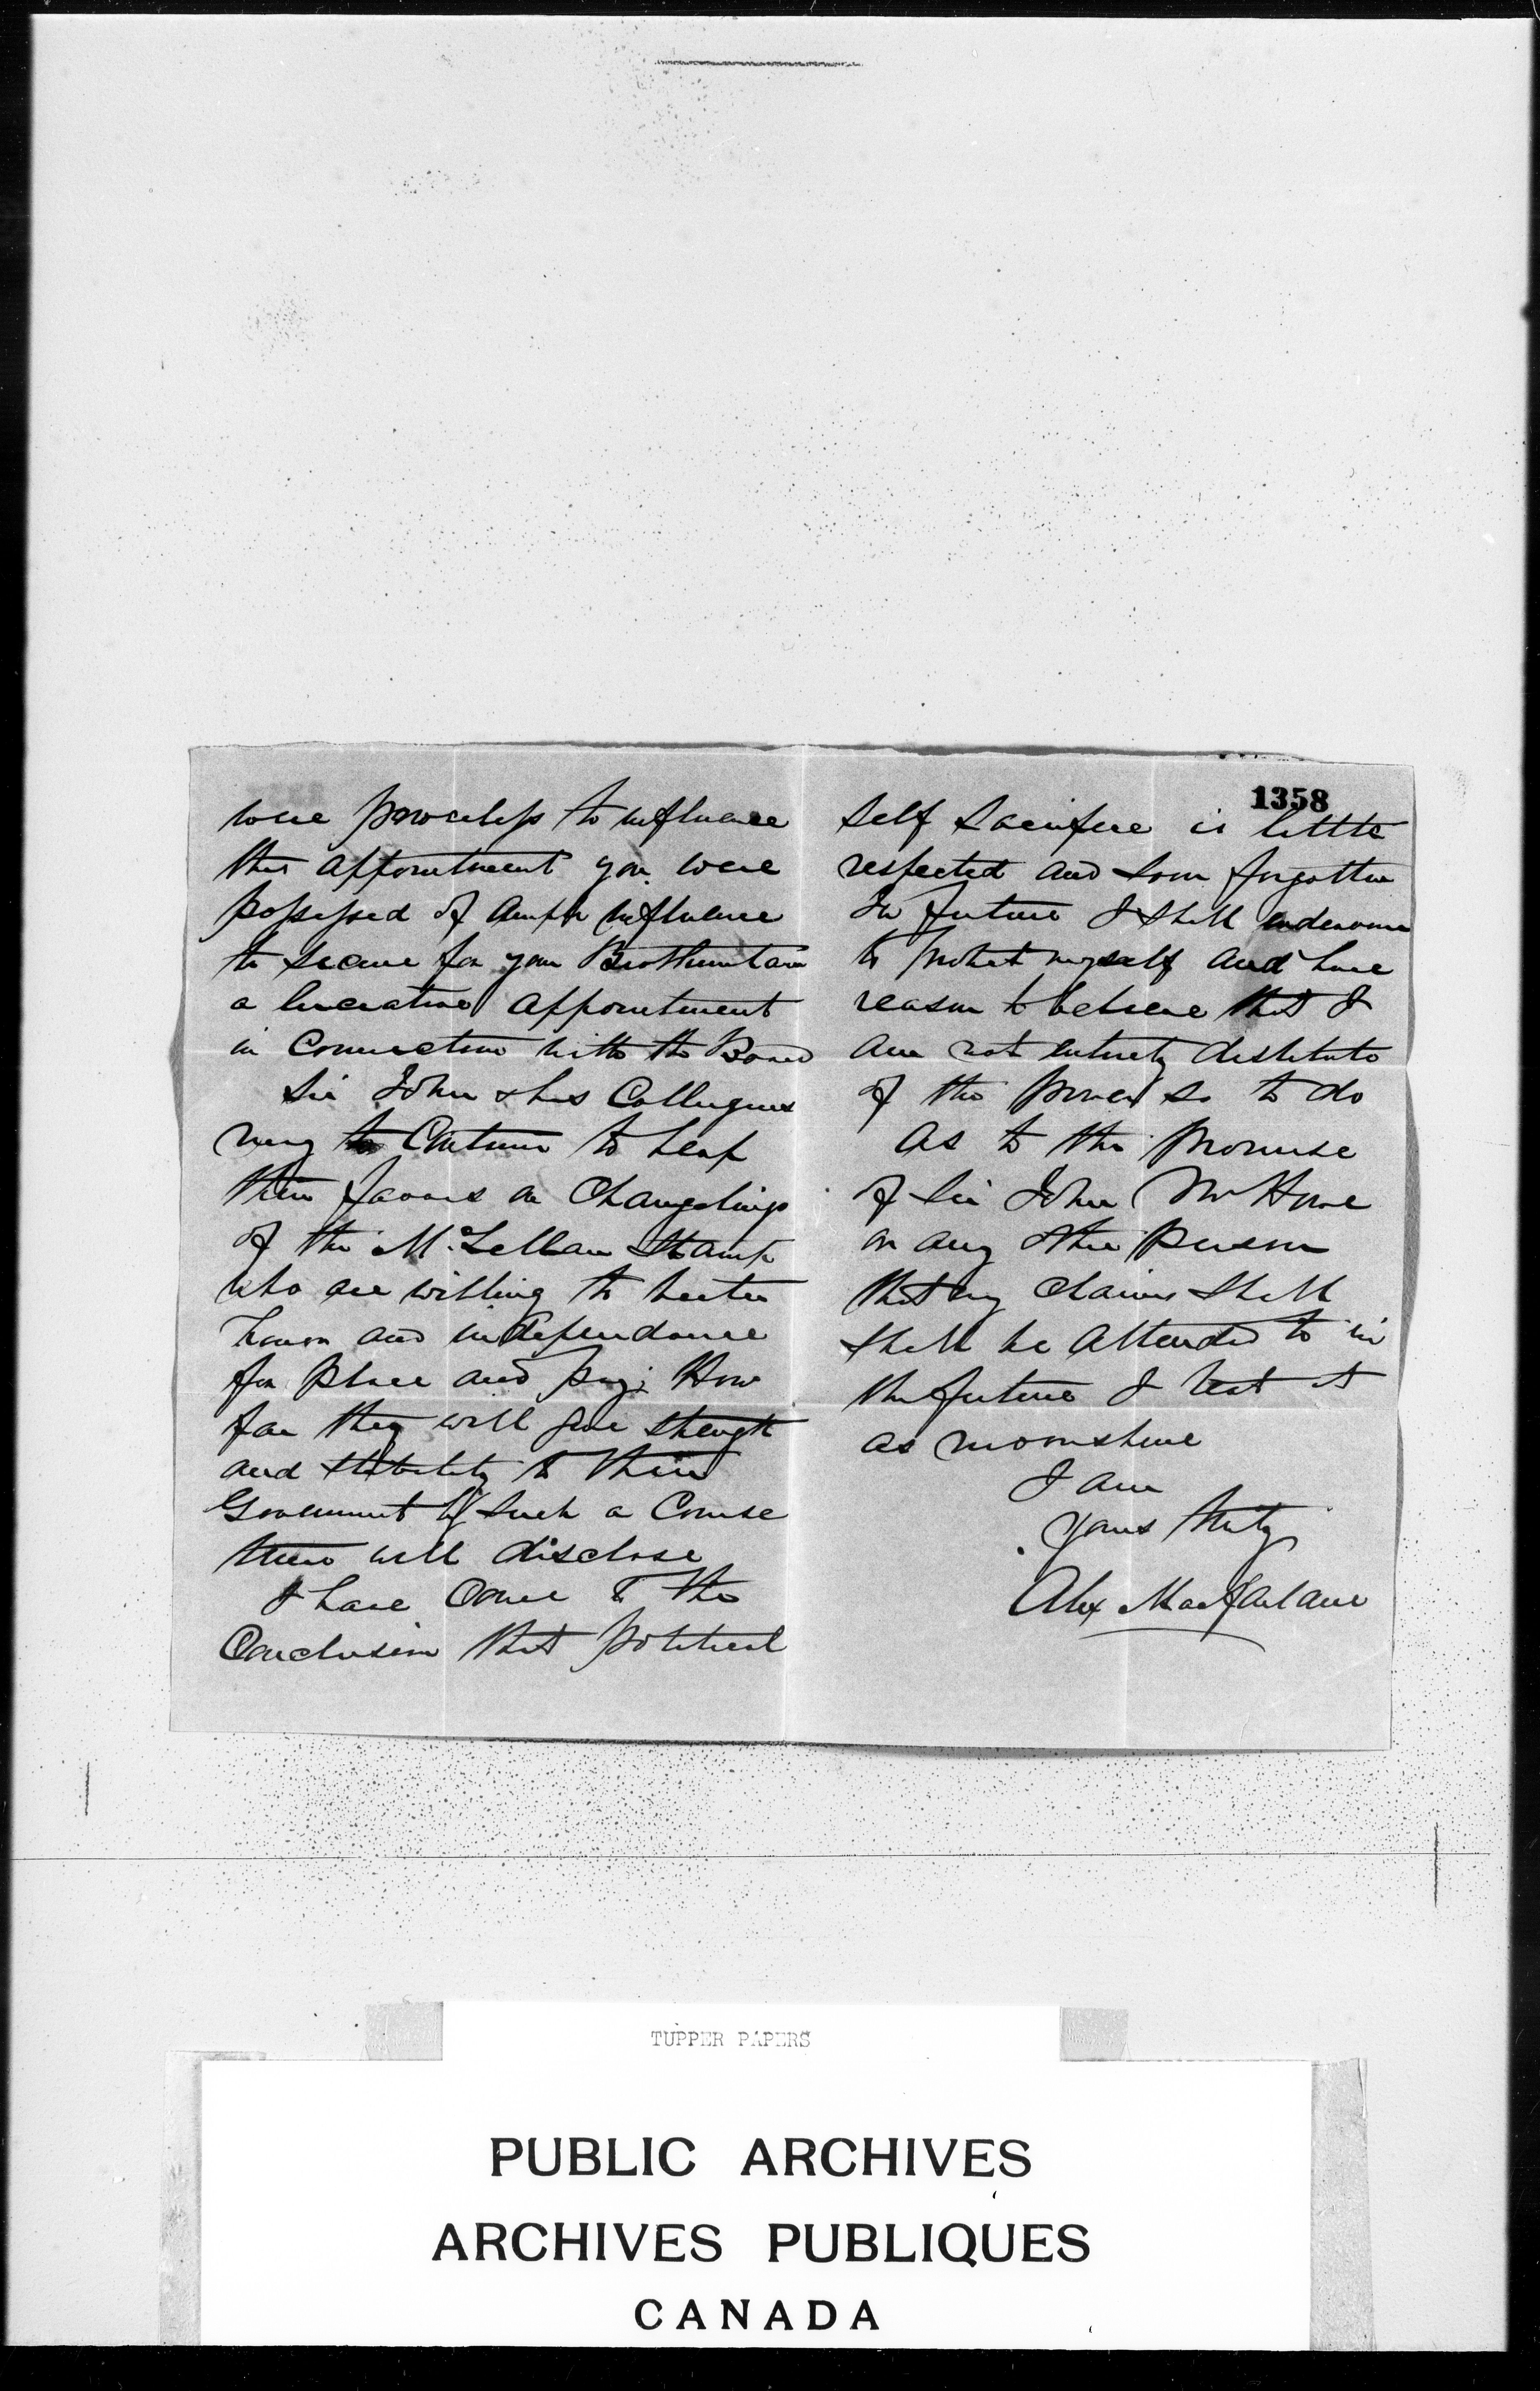 were powerless to influence
this appointment you were
possessed of ample influence
to secure for your Brotherinlaw
a lucrative appointment
in Connection with the Board
Sir John & his Collegues
may Continue to heap
their favors on Changelings
of the McLellan Stamp
who are willing to barter
honor and independance
for place and pay; How
far they will give strength
and stability to their
Government by such a Course
time will disclose
I have Come to the
Conclusion that political
1358
self sacrifice is little
respected and soon forgotten
In future I shall endeavour
to protect myself and have
reason to believe that I
am not entirely destitute
of the power so to do
As to the promise
of Sir John Mr Howe
or any other person
that my claims shall
shall be attended to in
the future I treat it
as moonshine
I am
Yours truly
Alex Macfarlane
TUPPER PAPERS
PUBLIC ARCHIVES
ARCHIVES PUBLIQUES
CANADA